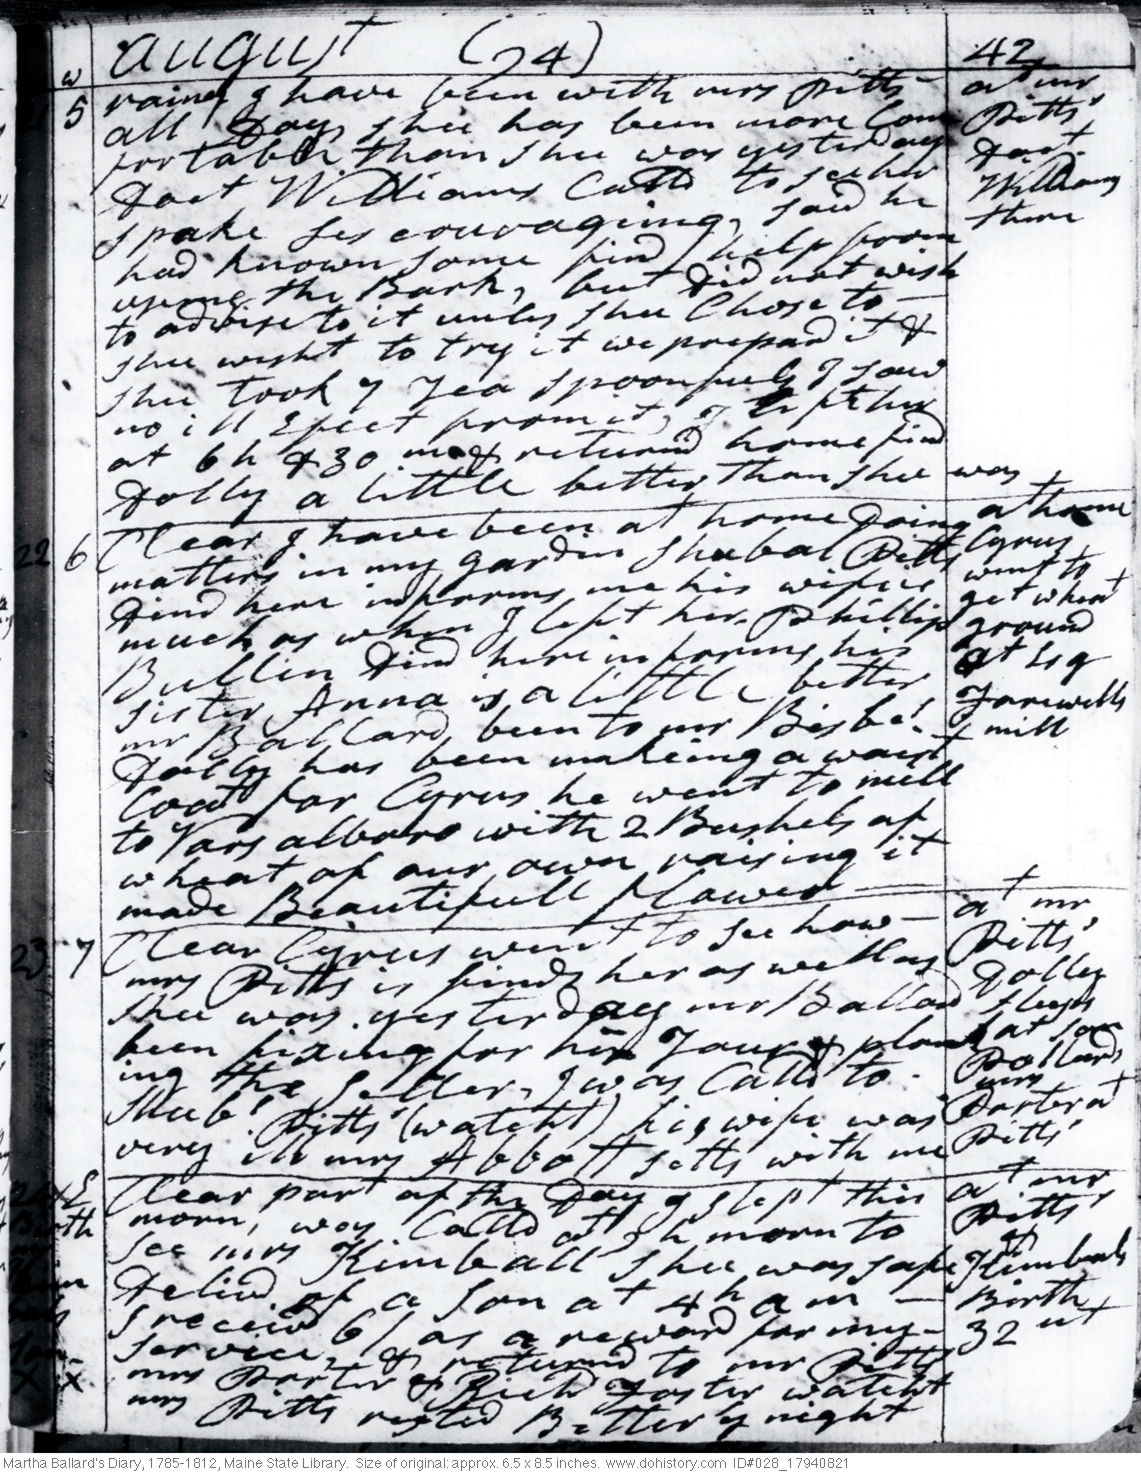 august (94) 42
w
21 5 rainy I have been with mrs Pitts
all Day, shee has been more Com
fortable than shee was yesterday
Doct Williams Calld to see her
spake Les couraging, said he
had known some find help from
using the Bark, but did not wish
to advise to it unles shee Chose to
shee wisht to try it we prepard it &
shee took 7 Tea spoonfuls I saw
no ill Efect from it, I left her
at 6 h & 30 m & returnd home find
Dolly a little better than shee was
at mr
Pitts'
Doct
Williams
there
22 6 Clear I have been at home Doing
matters in my gardin Shubal Pitts
Dind here informs me his wife is
much as when I left her. Phillip
Bullin Dind here informs his
sister Anna is a little better
mr Ballard been to mr Bisbe's
Dolly has been making a waist
Coat for Cyrus he went to mill
to Varsalboro with 2 Bushels of
wheat of our own raising it
made Beautifull flower
at home
Cyrus
went to
get wheat
ground
at Esq
Farewells
mill
23 7 Clear Cyrus went to see how
mrs Pitts is finds her as well as
shee was yesterday mr Ballard
been fixing for his Tour & plank
ing the Seller, I was Calld to
Shub' Pitts' (watcht) his wife was
very ill mrs Abbott setts with me
at mr
Pitts'
Polley
sleeps
at
Pollards
mrs
Porter at
Pitts'
24 E Clear part of the Day I slept this
morn, was Calld at 3 h morn to
see mrs Kimball shee was safe
Delivd of a son at 4 h a m
I receivd 6/ as a reward for my
service, & returnd to mr Pitts
mrs Porter & Rich'd Foster watcht
mrs Pitts rested Better by night
Birth
X X
at mr
Pitts'
at
Kimbals
Birth
32nt
Martha Ballard's Diary, 1785-1812, Maine State Library. Size of original: approx. 6.5 x 8.5 inches. www.dohistory.com ID#028_17940821